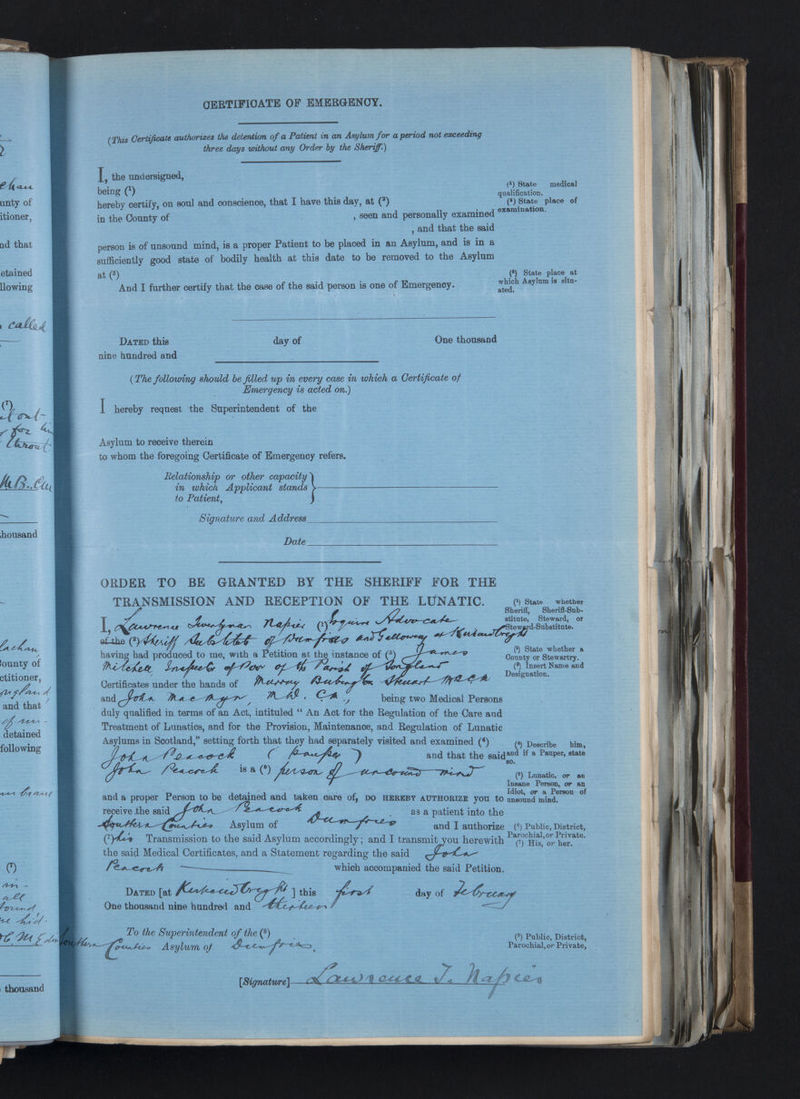 CERTIFICATE OF EMERGENCY.
(This Certificate authorizes the detention of a Patient in an Asylum for a period not exceeding
three days without any Order by the Sheriff.)
I, the undersigned,
being (¹)
hereby certify, on soul and conscience, that I have this day, at (²)
in the County of , seen and personally examined
, and that the said
person is of unsound mind, is a proper Patient to be placed in an Asylum, and is in a
sufficiently good state of bodily health at this date to be removed to the Asylum
at (³)
And I further certify that the case of the said person is one of Emergency.
(¹) State medical
qualification.
(²) State place of
examination.
(³) State place at
which Asylum is situ-
ated.
DATED this day of One thousand
nine hundred and
(The following should be filled up in every case in which a Certificate of
Emergency is acted on.)
I hereby request the Superintendent of the
Asylum to receive therein
to whom the foregoing Certificate of Emergency refers.
Relationship or other capacity
in which Applicant stands
to Patient,
Signature and Address
Date
ORDER TO BE GRANTED BY THE SHERIFF FOR THE
TRANSMISSION AND RECEPTION OF THE LUNATIC.
I, Lawrence Napier (¹) Esquire Advocate
of the (²) Sheriff Substitute of Dumfries and Galloway at Kirkcudbright
having had produced to me, with a Petition at the instance of (³) James
Mitchell Inspector of Poor of the Parish of
Certificates under the hands of Murray Stuart MRCPE
and John MacMyn, M.D. C.M., being two Medical Persons
duly qualified in terms of an Act, intituled “ An Act for the Regulation of the Care and
Treatment of Lunatics, and for the Provision, Maintenance, and Regulation of Lunatic
Asylums in Scotland,” setting forth that they had separately visited and examined (⁴)
John Peacock (Pauper) and that the said
John Peacock is a (⁵) person of unsound mind
and a proper Person to be detained and taken care of, DO HEREBY AUTHORIZE you to
receive the said John Peacock as a patient into the
Southern Counties Asylum of Dumfries and I authorize
(⁷) his Transmission to the said Asylum accordingly; and I transmit you herewith
the said Medical Certificates, and a Statement regarding the said John
Peacock which accompanied the said Petition.
DATED [at Kirkcudbright ] this first day of February
One thousand nine hundred and thirteen
To the Superintendent of the (⁶)
Southern Counties Asylum of Dumfries.
[Signature] Lawrence J. Napier
(¹) State whether
Sheriff, Sheriff-Sub-
stitute, Steward, or
Steward-Substitute.
(²) State whether a
County or Stewartry.
(³) Insert Name and
Designation.
(⁴) Describe him,
and if a Pauper, state
so.
(⁵) Lunatic, or an
Insane Person, or an
Idiot, or a Person of
unsound mind.
(⁶) Public, District,
Parochial, or Private.
(⁷) His, or her.
(⁸) Public, District,
Parochial, or Private,
unty of
itioner,
nd that
etained
llowing
called
housand
ounty of
ctitioner,
and that
detained
following
thousand